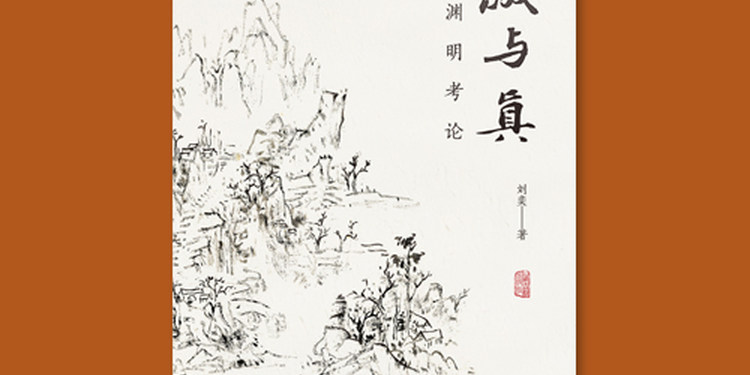 与真
渊明考论
刘奕——著